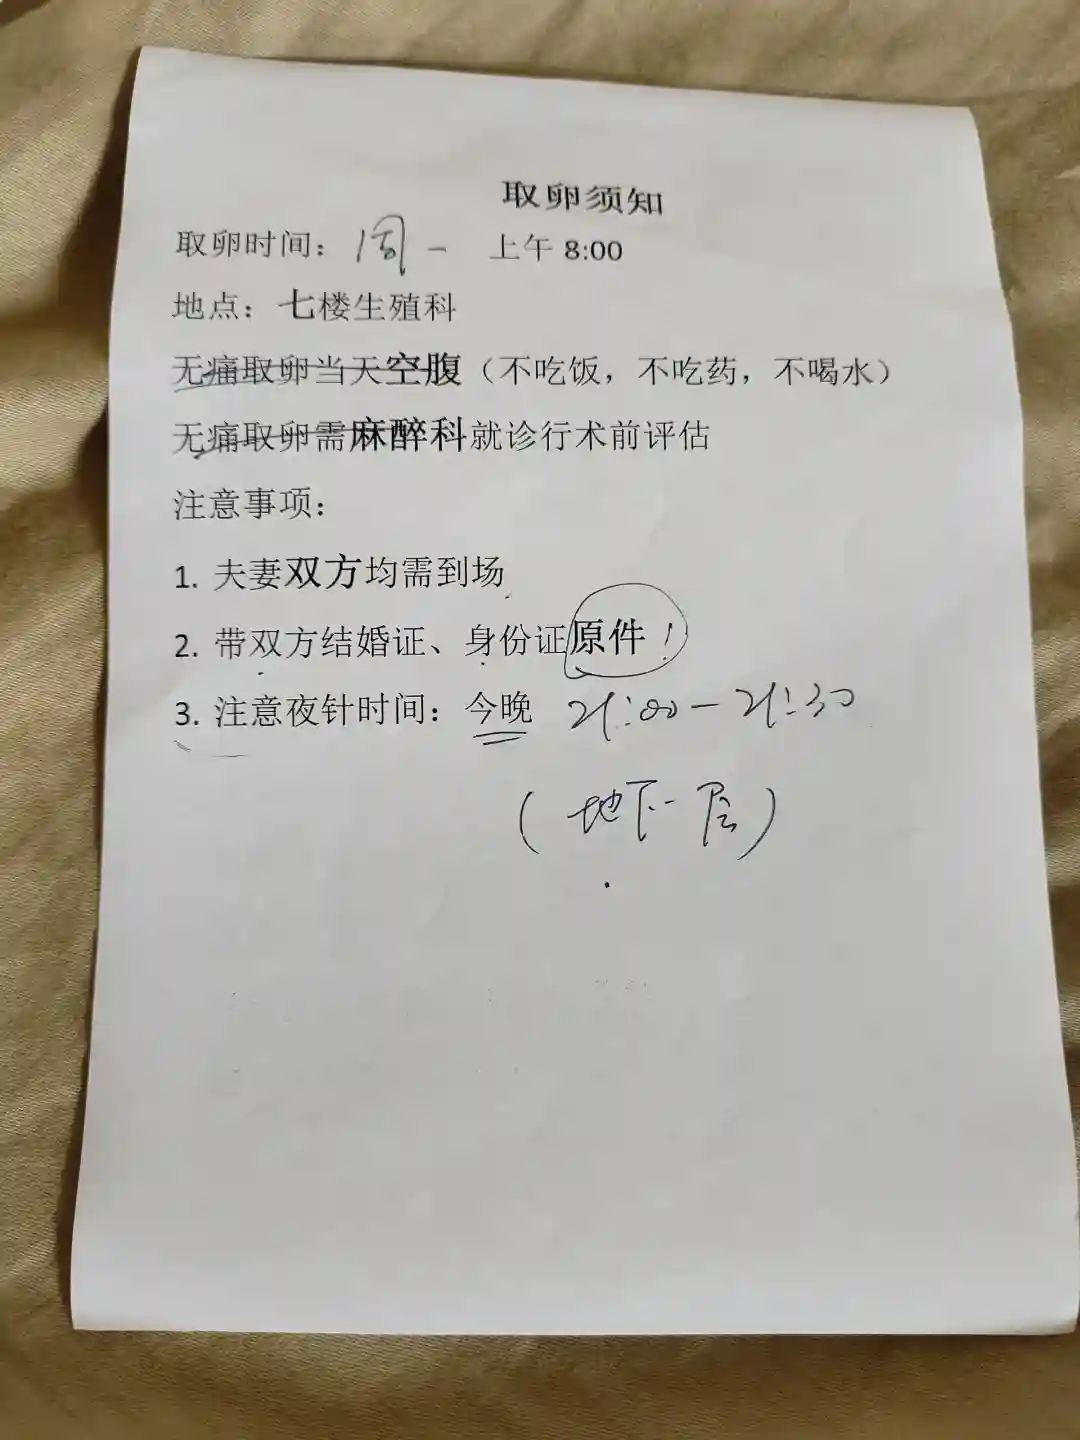 取卵须知
取卵时间：周一 上午 8:00
地点：七楼生殖科
无痛取卵当天空腹（不吃饭，不吃药，不喝水）
无痛取卵需麻醉科就诊行术前评估
注意事项：
1. 夫妻双方均需到场
2. 带双方结婚证、身份证原件！
3. 注意夜针时间：今晚 21:00-21:30
（地下一层）